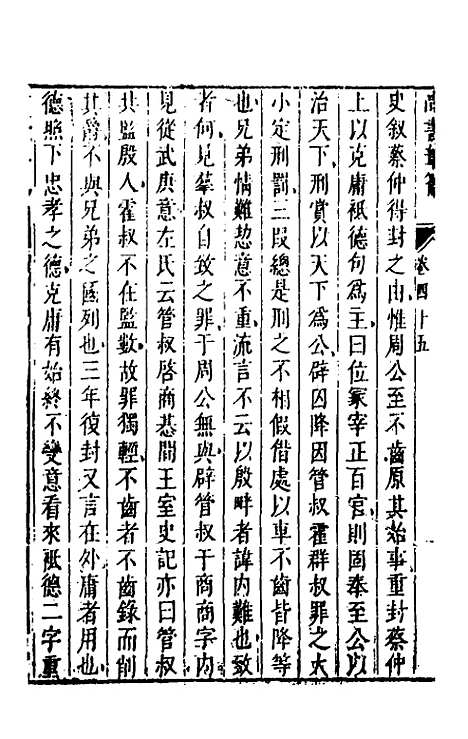 卷四十五
史敘蔡仲得封之由惟周公至不齒原其始事重封蔡仲
上以克庸祗德句為主曰位冢宰正百官則固奉至公以
治天下刑賞以天下為公辟囚降因管叔霍群叔罪之大
小定刑罰三段總是刑之不相假借處以車不齒皆降等
也兄弟情難恝意不重流言不云以殷畔者諱內難也致
者何見華叔自致之罪于周公無與辟管叔于商商字內
見從武庚意左氏云管叔啓商惎間王室史記亦曰管叔
共監殷人霍叔不在監數故罪獨輕不齒者不齒錄而削
其爵不與兄弟之國列也三年復封又言在外庸者用也
德照下忠孝之德克庸有始終不變意看來祗德二字重